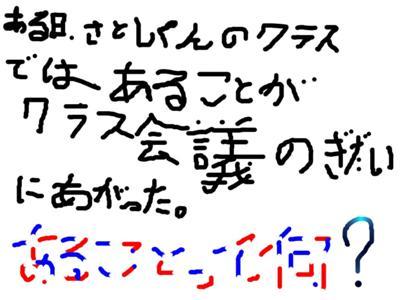 ある日、さとしくんのクラス
では あることが
クラス会議のぎだい
にあがった。
あることって何?